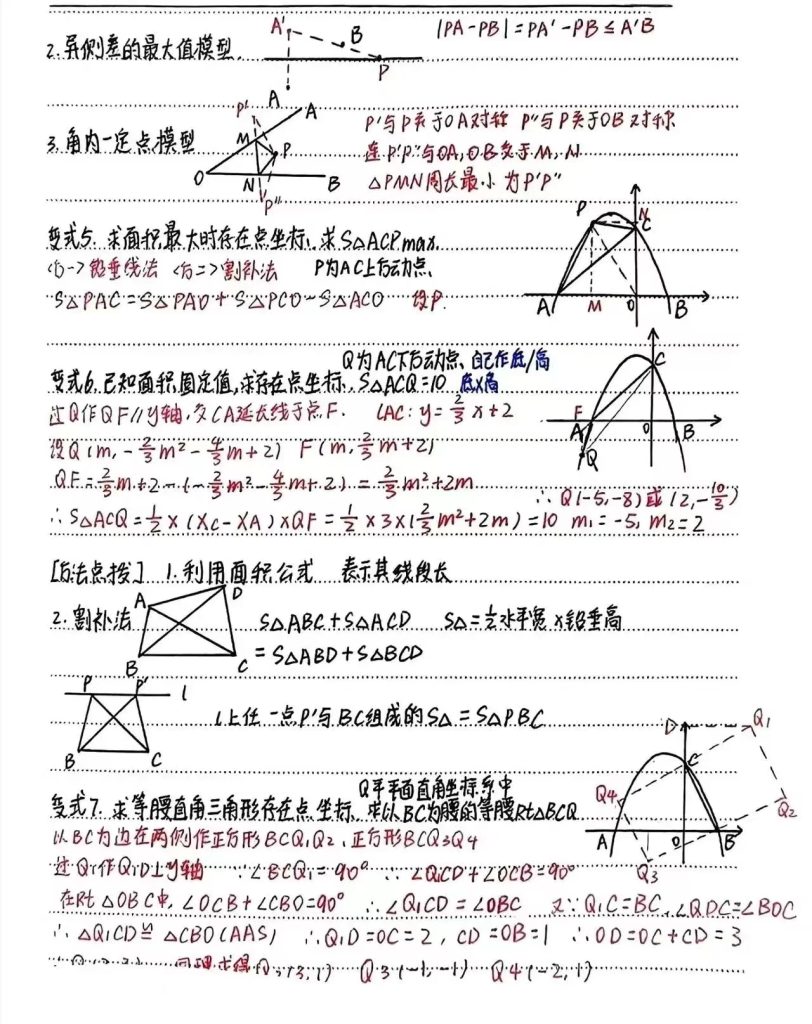 |PA-PB|=PA'-PB≤A'B
2.异侧差的最大值模型.
A'
B
P
A
3.角内一定点模型
P'
A
M
P
O
N
B
P"
P'与P关于OA对称 P"与P关于OB对称
连P'P"与OA,OB交于M,N
△PMN周长最小为P'P"
变式5.求面积最大时存在点坐标.求S△ACPmax.
<方一>铅垂线法 <方二>割补法 P为AC上方动点.
S△PAC=S△PAO+S△PCO-S△ACO 设P.
P
N
C
A
M
O
B
Q为AC下方动点.自己作底/高
变式6.已知面积固定值,求存在点坐标.S△ACQ=10 底×高
过Q作QF//y轴.交CA延长线于点F. lAC:y=2/3x+2
设Q(m,-2/3m²-4/3m+2) F(m,2/3m+2)
QF=2/3m+2-(-2/3m²-4/3m+2)=2/3m²+2m
∴Q(-5,-8)或(2,-10/3)
∴S△ACQ=1/2×(xC-xA)×QF=1/2×3×(2/3m²+2m)=10 m₁=-5,m₂=2
C
F
A
O
B
Q
[方法点拨] 1.利用面积公式 表示其线段长
2.割补法
A
D
B
C
S△ABC+S△ACD S△=1/2水平宽×铅垂高
=S△ABD+S△BCD
P
P'
l
B
C
l上任一点P'与BC组成的S△=S△PBC
Q平平面直角坐标系中
变式7.求等腰直角三角形存在点坐标.求以BC为腰的等腰Rt△BCQ
以BC为边在两侧作正方形BCQ₁Q₂,正方形BCQ₃Q₄
过Q₁作Q₁D⊥y轴 ∵∠BCQ₁=90° ∴∠Q₁CD+∠OCB=90°
在Rt△OBC中,∠OCB+∠CBO=90° ∴∠Q₁CD=∠OBC 又∵Q₁C=BC,∠QDC=∠BOC
∴△Q₁CD≌△CBO(AAS) ∴Q₁D=OC=2,CD=OB=1 ∴OD=OC+CD=3
同理求得 (3,1) Q₃(-1,-1) Q₄(-2,1)
D
Q₁
C
Q₄
Q₂
A
O
B
Q₃